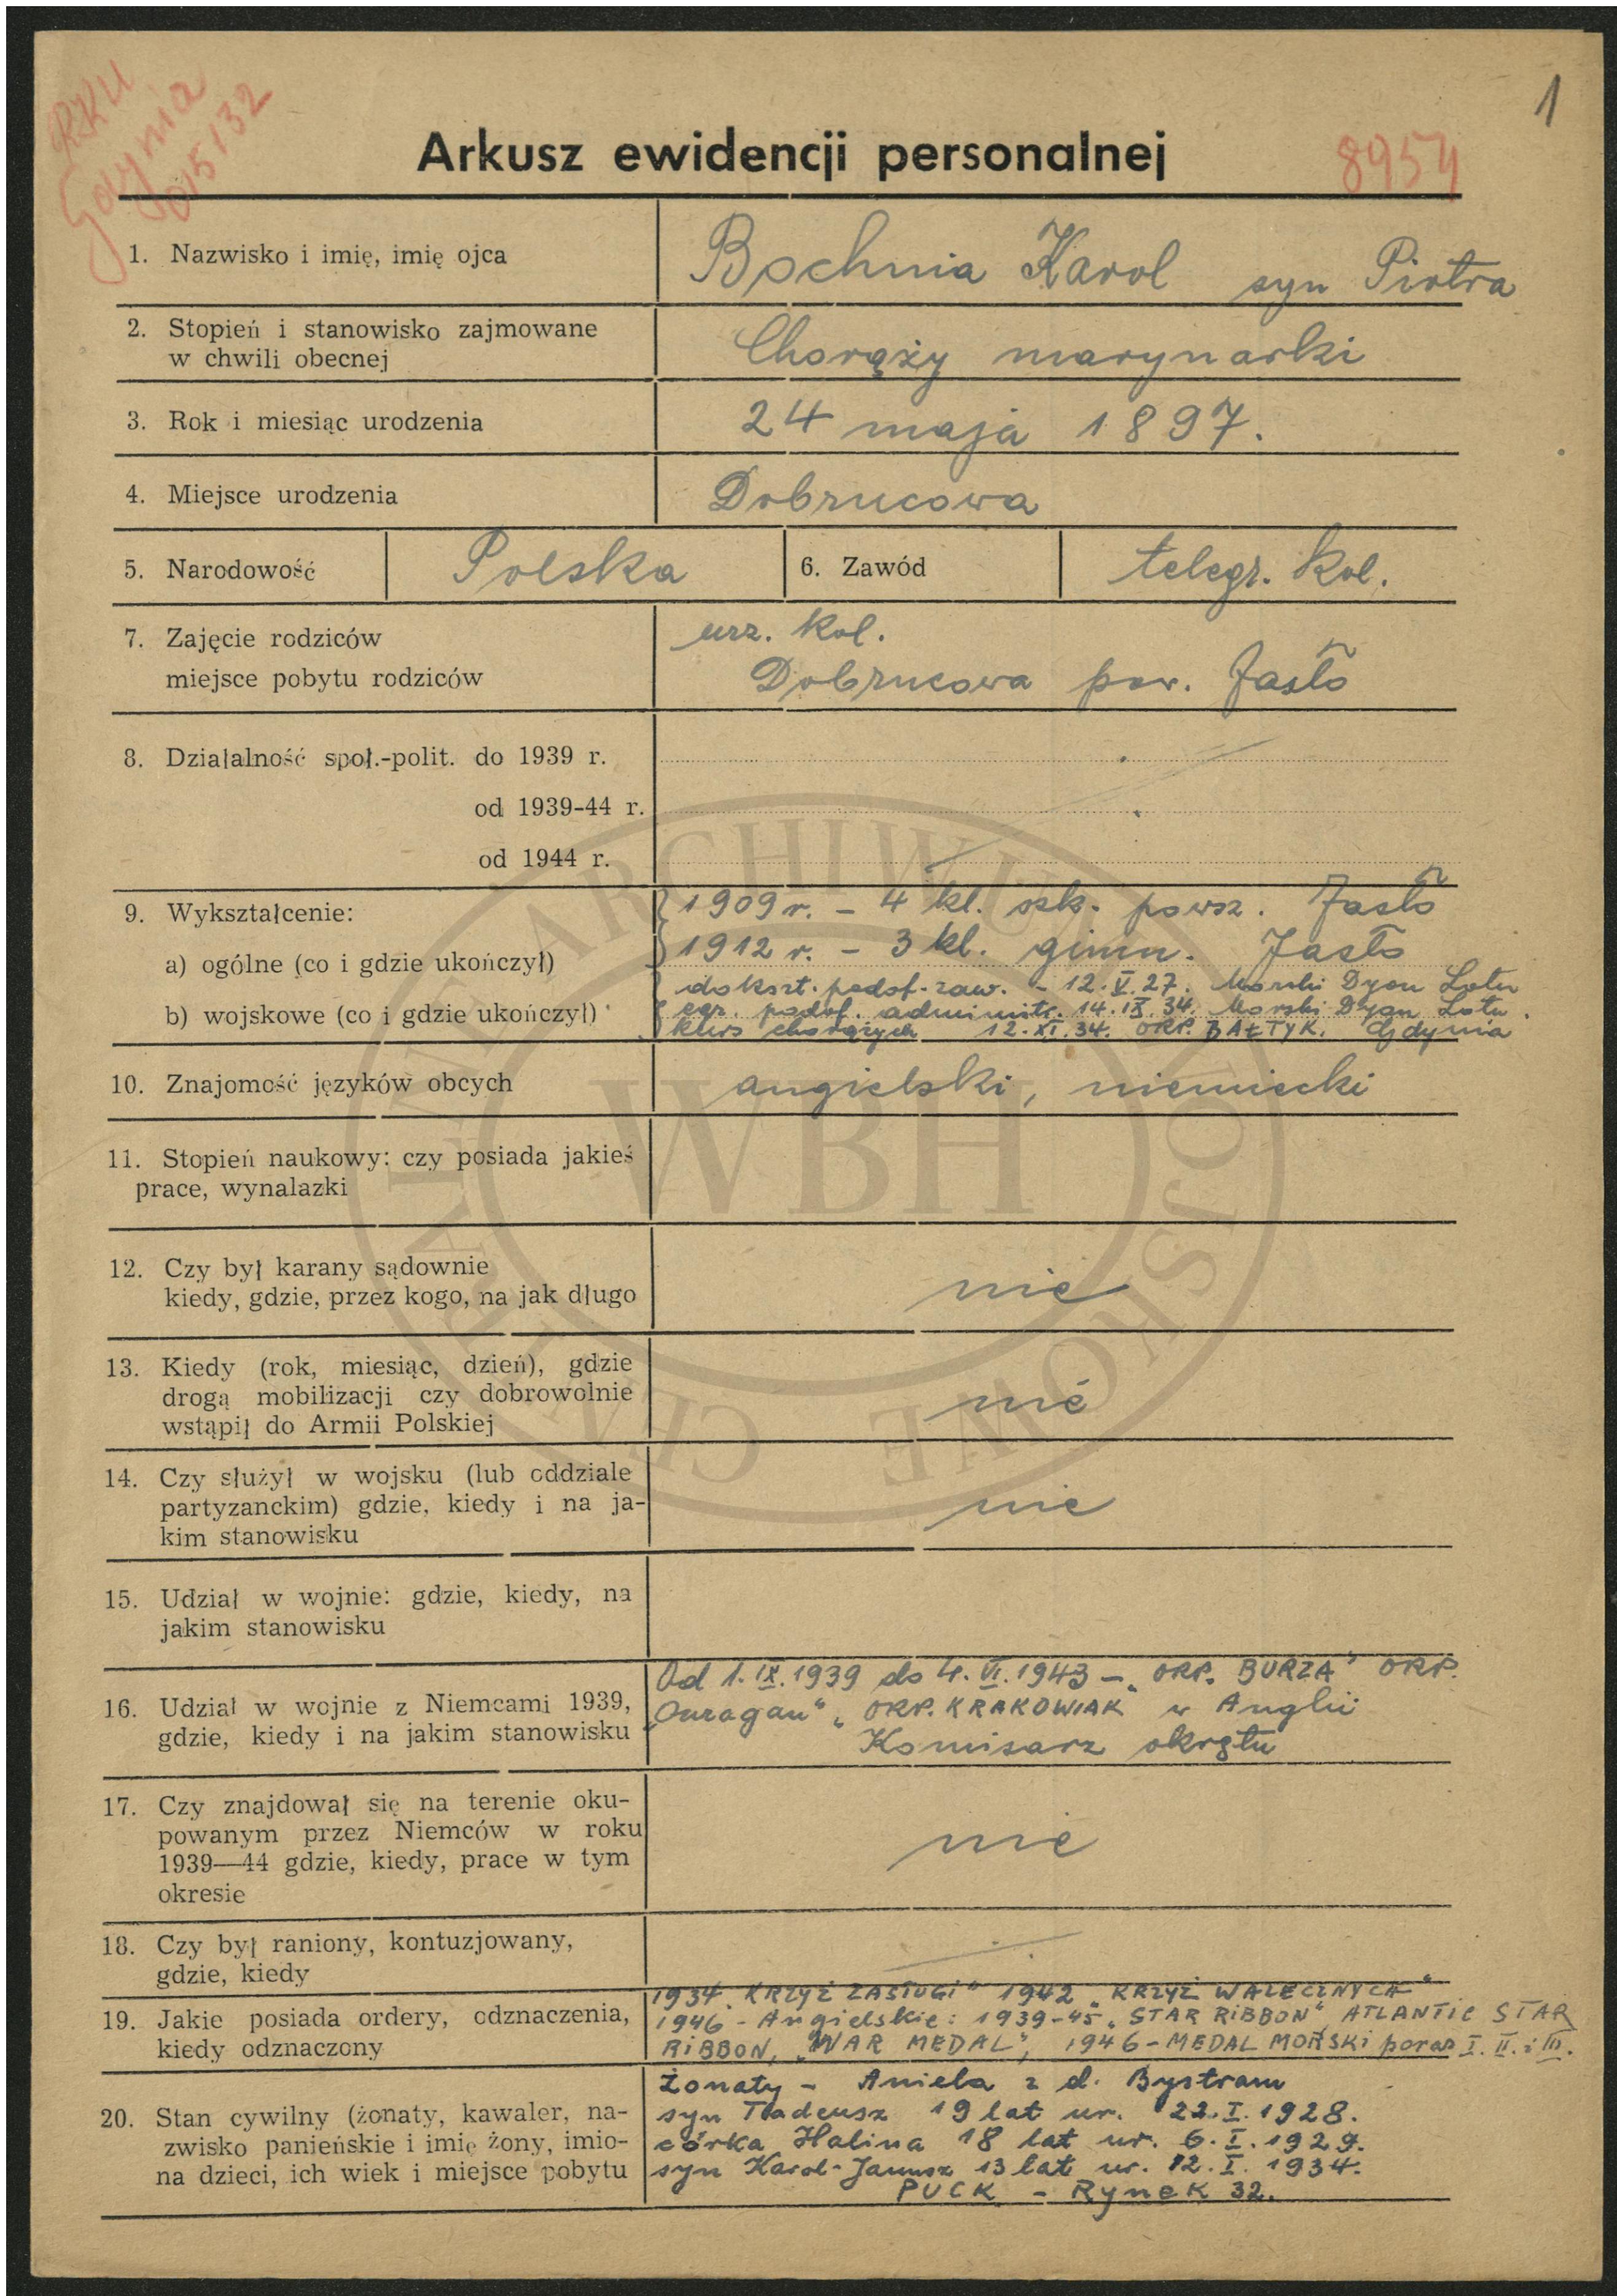 RKU
Gdynia
1
8954
Arkusz ewidencji personalnej
1. Nazwisko i imię, imię ojca
Bochnia Karol syn Piotra
2. Stopień i stanowisko zajmowane
w chwili obecnej
Chorąży marynarki
3. Rok i miesiąc urodzenia
24 maja 1897.
4. Miejsce urodzenia
Dobrucowa
5. Narodowość Polska 6. Zawód telegr. kol.
7. Zajęcie rodziców
urz. kol.
miejsce pobytu rodziców
Dobrucowa pow. Jasło
8. Działalność społ.-polit. do 1939 r.
od 1939-44 r.
od 1944 r.
9. Wykształcenie:
1909 r. - 4 kl. szk. powsz. Jasło
a) ogólne (co i gdzie ukończył)
1912 r. - 3 kl. gimn. Jasło
b) wojskowe (co i gdzie ukończył)
dokszt. podof. zaw. - 12.V.27. Morski Dyon Lotn
egz. podof. administr. 14.IX.34. Morski Dyon Lotn.
kurs chorążych 12.XI.34. ORP. BAŁTYK. Gdynia
10. Znajomość języków obcych
angielski, niemiecki
11. Stopień naukowy: czy posiada jakieś
prace, wynalazki
12. Czy był karany sądownie
kiedy, gdzie, przez kogo, na jak długo
nie
13. Kiedy (rok, miesiąc, dzień), gdzie
drogą mobilizacji czy dobrowolnie
wstąpił do Armii Polskiej
nie
14. Czy służył w wojsku (lub oddziale
partyzanckim) gdzie, kiedy i na ja-
kim stanowisku
nie
15. Udział w wojnie: gdzie, kiedy, na
jakim stanowisku
16. Udział w wojnie z Niemcami 1939,
gdzie, kiedy i na jakim stanowisku
Od 1.IX.1939 do 4.VI.1943 - „ORP. BURZA" ORP.
„Ouragan" „ORP. KRAKOWIAK w Anglii
Komisarz okrętu
17. Czy znajdował się na terenie oku-
powanym przez Niemców w roku
1939—44 gdzie, kiedy, prace w tym
okresie
nie
18. Czy był raniony, kontuzjowany,
gdzie, kiedy
19. Jakie posiada ordery, odznaczenia,
kiedy odznaczony
1934. KRZYŻ ZASŁUGI" 1942 „KRZYŻ WALECZNYCH"
1946 - Angielskie: 1939-45 „STAR RIBBON", ATLANTIC STAR
RIBBON, „WAR MEDAL", 1946 - MEDAL MORSKI poraz I. II. i III.
20. Stan cywilny (żonaty, kawaler, na-
zwisko panieńskie i imię żony, imio-
na dzieci, ich wiek i miejsce pobytu
Żonaty - Aniela z d. Bystram
syn Tadeusz 19 lat ur. 22.I.1928.
córka Halina 18 lat ur. 6.I.1929.
syn Karol-Janusz 13 lat ur. 12.I.1934.
PUCK - Rynek 32.
WBH